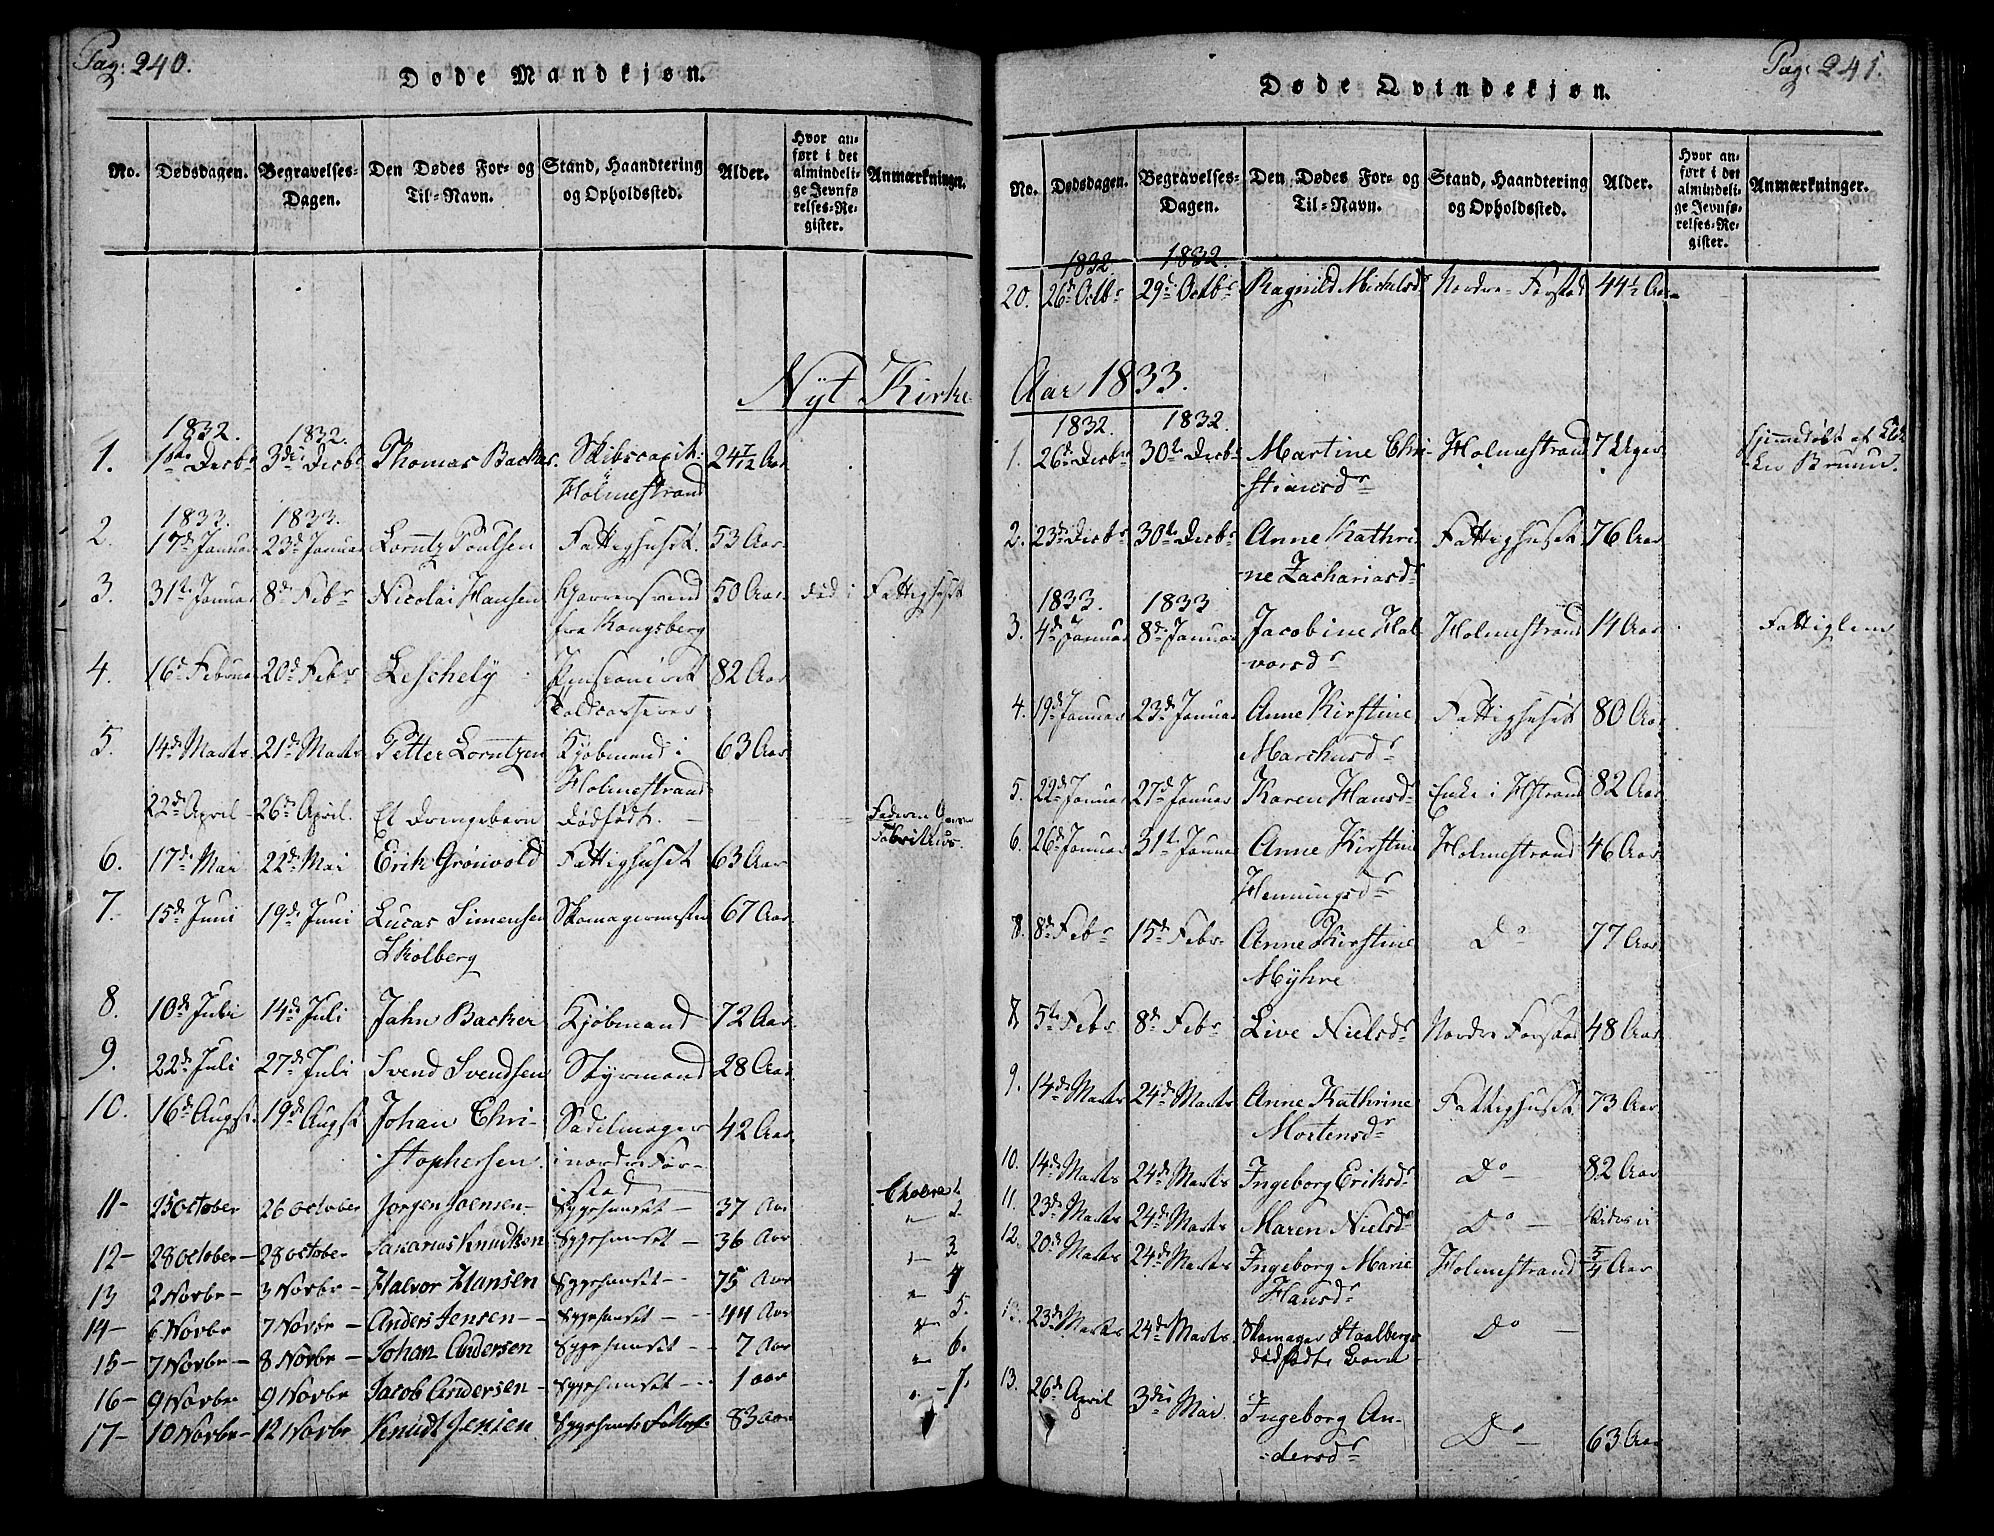 Pag: 240.
Døde Mandkjøn.
No. Dødsdagen. Begravelses-Dagen. Den Dødes For- og Til-Navn. Stand, Haandtering og Opholdssted. Alder. Hvor anført i det almindelige Jevnførelses-Register. Anmærkninger.
Nyt Kirke
1832. 1832.
1. 1ste Decbr 3die Decbr Thomas Backer. Skibscapit. 24 7/12 Aar
Holmestrand
1833. 1833.
2. 17de Januar 23de Januar Lorntz Poulsen Fattighuset. 53 Aar
3. 31te Januar 8de Febr Nicolai Hansen 50 Aar. Død i Fattighuset
fra Kongsberg
4. 16de Februar 20de Febr Leschely Pensioneret 82 Aar
5. 14de Marts 21de Marts Petter Lorntzen Kjøbmand i 63 Aar
Holmestrand
22de April 26de April. Et Drengebarn Dødfødt. Faderen
Fabritius.
6. 17de Mai 22de Mai Erik Grönvold Fattighuset 63 Aar
7. 15de Juni 19de Juni Lucas Simensen Skomagermester 67 Aar
Skolberg
8. 10de Juli 14de Juli Jahn Backer Kjøbmand 72 Aar
9. 22de Juli 27de Juli Svend Svendsen Styrmand 28 Aar
10. 16de Augst. 19de Augst Johan Chri- Sadelmager 42 Aar
stophersen. i nordre For-
stad
11- 25 October 26 October Jørgen Joensen- Sygehuuset- 37 Aar Cholera 1
12- 28 October- 28 October Sakarias Knudtsen Sygehuuset- 36 Aar " 2
13 2 Novbr- 3 Novbr- Halvor Hansen Sygehuuset- 75 Aar " 3
14- 6 Novbr 7 Novbr- Anders Jensen- Sygehuuset- 44 Aar " 4
15- 7 Novbr- 8 Novbr- Johan Andersen Sygehuuset- 7 Aar " 5.
16- 9 Novbr 9 Novbr Jacob Andersen- Sygehuuset- 1 aar " 6.
17- 10 Novbr- 12 Novbr Knudt Jensen Sygehuuset 83 aar " - 7.
Pag: 241.
Døde Qvindekjøn.
No. Dødsdagen. Begravelses-Dagen. Den Dødes For- og Til-Navn. Stand, Haandtering og Opholdssted. Alder. Hvor anført i det almindelige Jevnførelses-Register. Anmærkninger.
1832. 1832.
20. 26de Octbr 29de Octbr Ragnild Mickelsdr Nordre Forstad 44½ Aar
Aar 1833.
1832. 1832.
1. 26de Decbr 30te Decbr Martine Chri- Holmestrand 7 Uger hjemmedøbt af
stiansdr Bruun.
2. 23de Decbr 30te Decbr Anne Kathri- Fattighuset 76 Aar
ne Zachariasdr
1833. 1833
3. 4de Januar 8de Januar Jacobine Hal- Holmestrand 14 Aar Fattiglem
vorsdr
4. 19de Januar 23de Januar Anne Kirstine Fattighuset 80 Aar
Marchusdr
5. 22de Januar 27de Januar Karen Hansdr Enke i Hstrand 82 Aar
6. 26de Januar 31te Januar Anne Kirstine Holmestrand 46 Aar
Henningsdr
8. 8de Febr 15de Febr Anne Kirstine Do 77 Aar
Myhre
8. 5te Febr 8de Febr Live Nielsdr Nordre Forstad 48 Aar
9. 14de Marts 24de Marts Anne Kathrine Fattighuset 73 Aar
Mortensdr
10. 14de Marts 24de Marts Ingeborg Eriksdr Do 82 Aar
11. 23de Marts 24de Marts Maren Nielsdr Do -
12. 20de Marts 24de Marts Ingeborg Marie Holmestrand 5/4 Aar
Hansdr
13. 23de Marts 24de Marts Skomager Staalbergs Do -
dødfødte Barn
13. 26de April 3die Mai Ingeborg An- Do - 63 Aar
dersdr